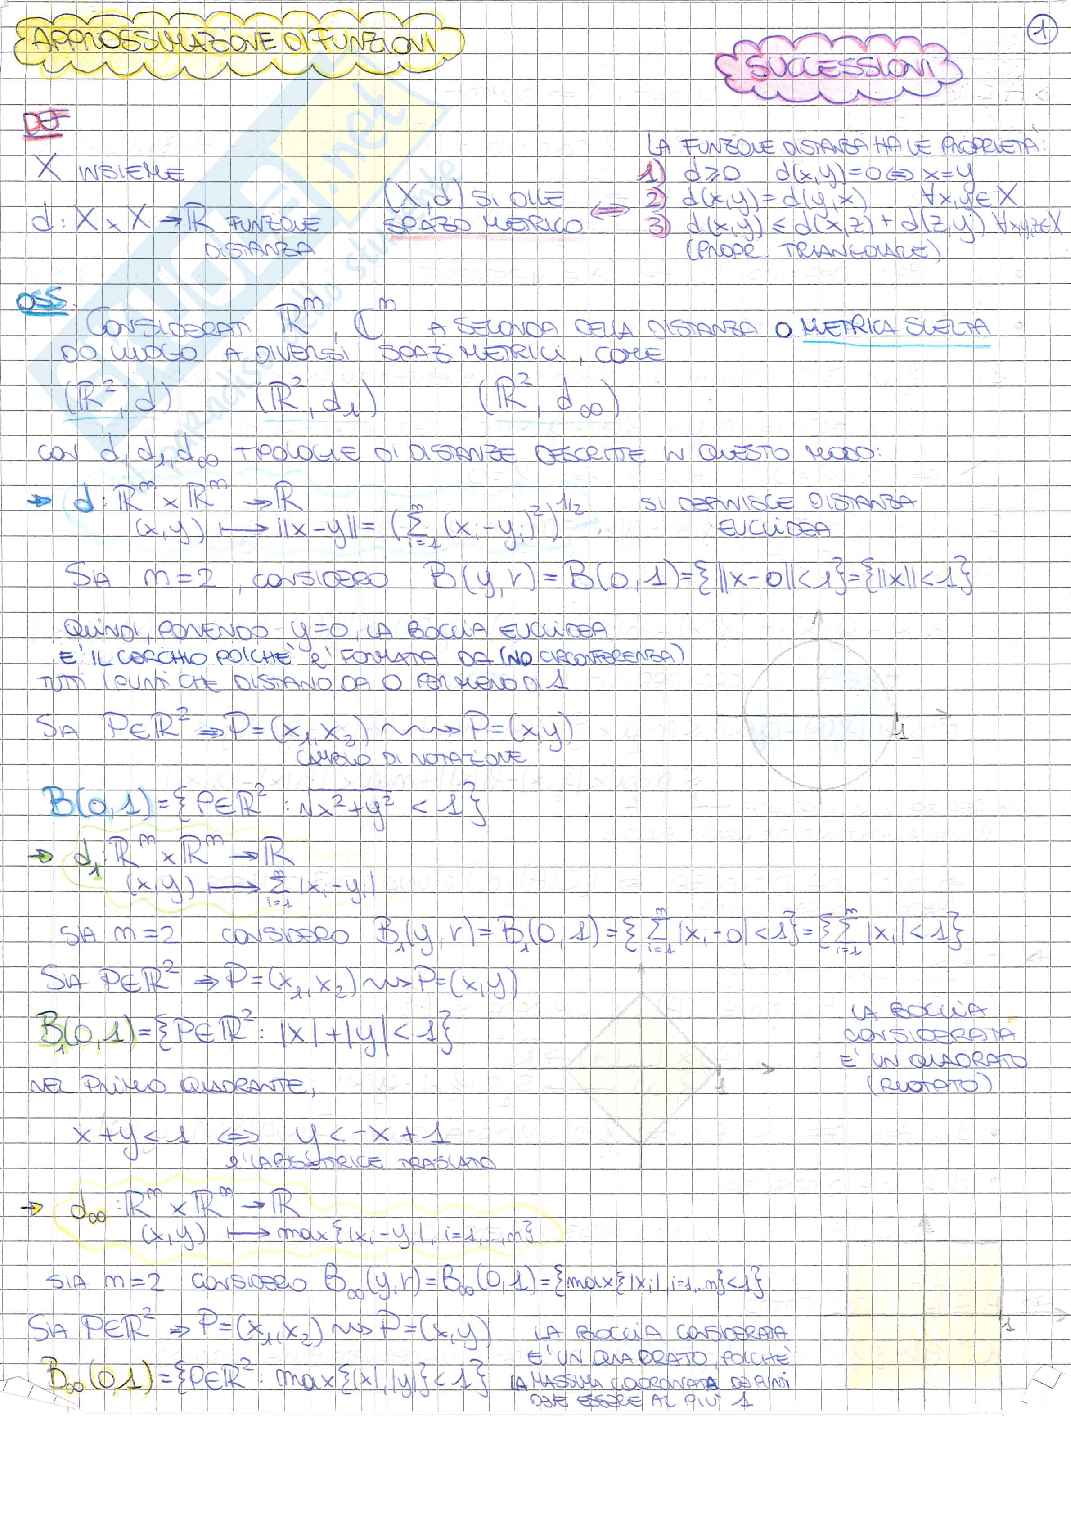 1
APPROSSIMAZIONE DI FUNZIONI
SUCCESSIONI
DEF
X INSIEME
d: X x X → ℝ FUNZIONE DISTANZA
(X,d) SI DICE SPAZIO METRICO ⇔
LA FUNZIONE DISTANZA HA LE PROPRIETÀ:
1) d≥0 d(x,y)=0 ⇔ x=y
2) d(x,y)=d(y,x) ∀x,y∈X
3) d(x,y) ≤ d(x,z) + d(z,y) ∀x,y,z∈X
(PROPR. TRIANGOLARE)
OSS.
CONSIDERATI ℝᵐ, ℂᵐ A SECONDA DELLA DISTANZA O METRICA SCELTA
DO LUOGO A DIVERSI SPAZI METRICI, COME
(ℝ², d) (ℝ², d₁) (ℝ², d∞)
CON d, d₁, d∞ TIPOLOGIE DI DISTANZE DESCRITTE IN QUESTO MODO:
→ d: ℝᵐ x ℝᵐ → ℝ
(x,y) ⟼ ||x-y|| = (Σᵢ₌₁ᵐ (xᵢ-yᵢ)²)^1/2
SI DEFINISCE DISTANZA
EUCLIDEA
SIA m=2, CONSIDERO B(y,r)=B(0,1)={||x-0||<1}={||x||<1}
QUINDI, PONENDO y=0, LA BOCCIA EUCLIDEA
E' IL CERCHIO POICHE' E' FORMATA DA (NO CIRCONFERENZA)
TUTTI I PUNTI CHE DISTANO DA 0 PER MENO DI 1
1
SIA P∈ℝ² ⇒ P=(x₁,x₂) ⇝ P=(x,y)
CAMBIO DI NOTAZIONE
B(0,1)={P∈ℝ²: √x²+y² < 1}
→ d₁: ℝᵐ x ℝᵐ → ℝ
(x,y) ⟼ Σᵢ₌₁ᵐ |xᵢ-yᵢ|
SIA m=2 CONSIDERO B₁(y,r)=B₁(0,1)={Σᵢ₌₁ᵐ |xᵢ-0|<1}={Σᵢ₌₁ᵐ |xᵢ|<1}
SIA P∈ℝ² ⇒ P=(x₁,x₂) ⇝ P=(x,y)
B₁(0,1)={P∈ℝ²: |x|+|y|<1}
1
LA BOCCIA
CONSIDERATA
E' UN QUADRATO
(RUOTATO)
NEL PRIMO QUADRANTE,
x+y<1 ⇔ y<-x+1
E' LA BISETTRICE TRASLATA
→ d∞: ℝᵐ x ℝᵐ → ℝ
(x,y) ⟼ max{|xᵢ-yᵢ|, i=1,..,m}
SIA m=2 CONSIDERO B∞(y,r)=B∞(0,1)={max{|xᵢ|, i=1,..m}<1}
SIA P∈ℝ² ⇒ P=(x₁,x₂) ⇝ P=(x,y)
B∞(0,1)={P∈ℝ²: max{|x|,|y|}<1}
LA BOCCIA CONSIDERATA
E' UN QUADRATO, POICHÈ
LA MASSIMA COORDINATA DEI PUNTI
DEVE ESSERE AL PIÙ 1
1